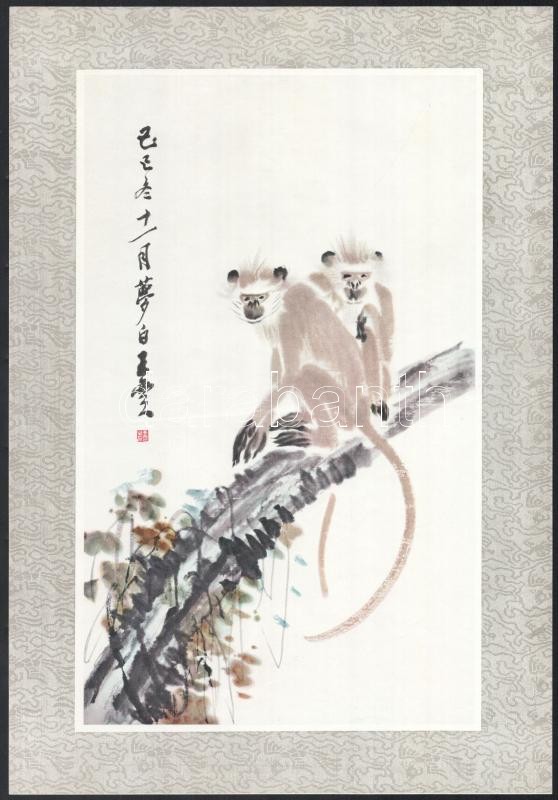 己巳冬十一月夢白王雲
darabanth